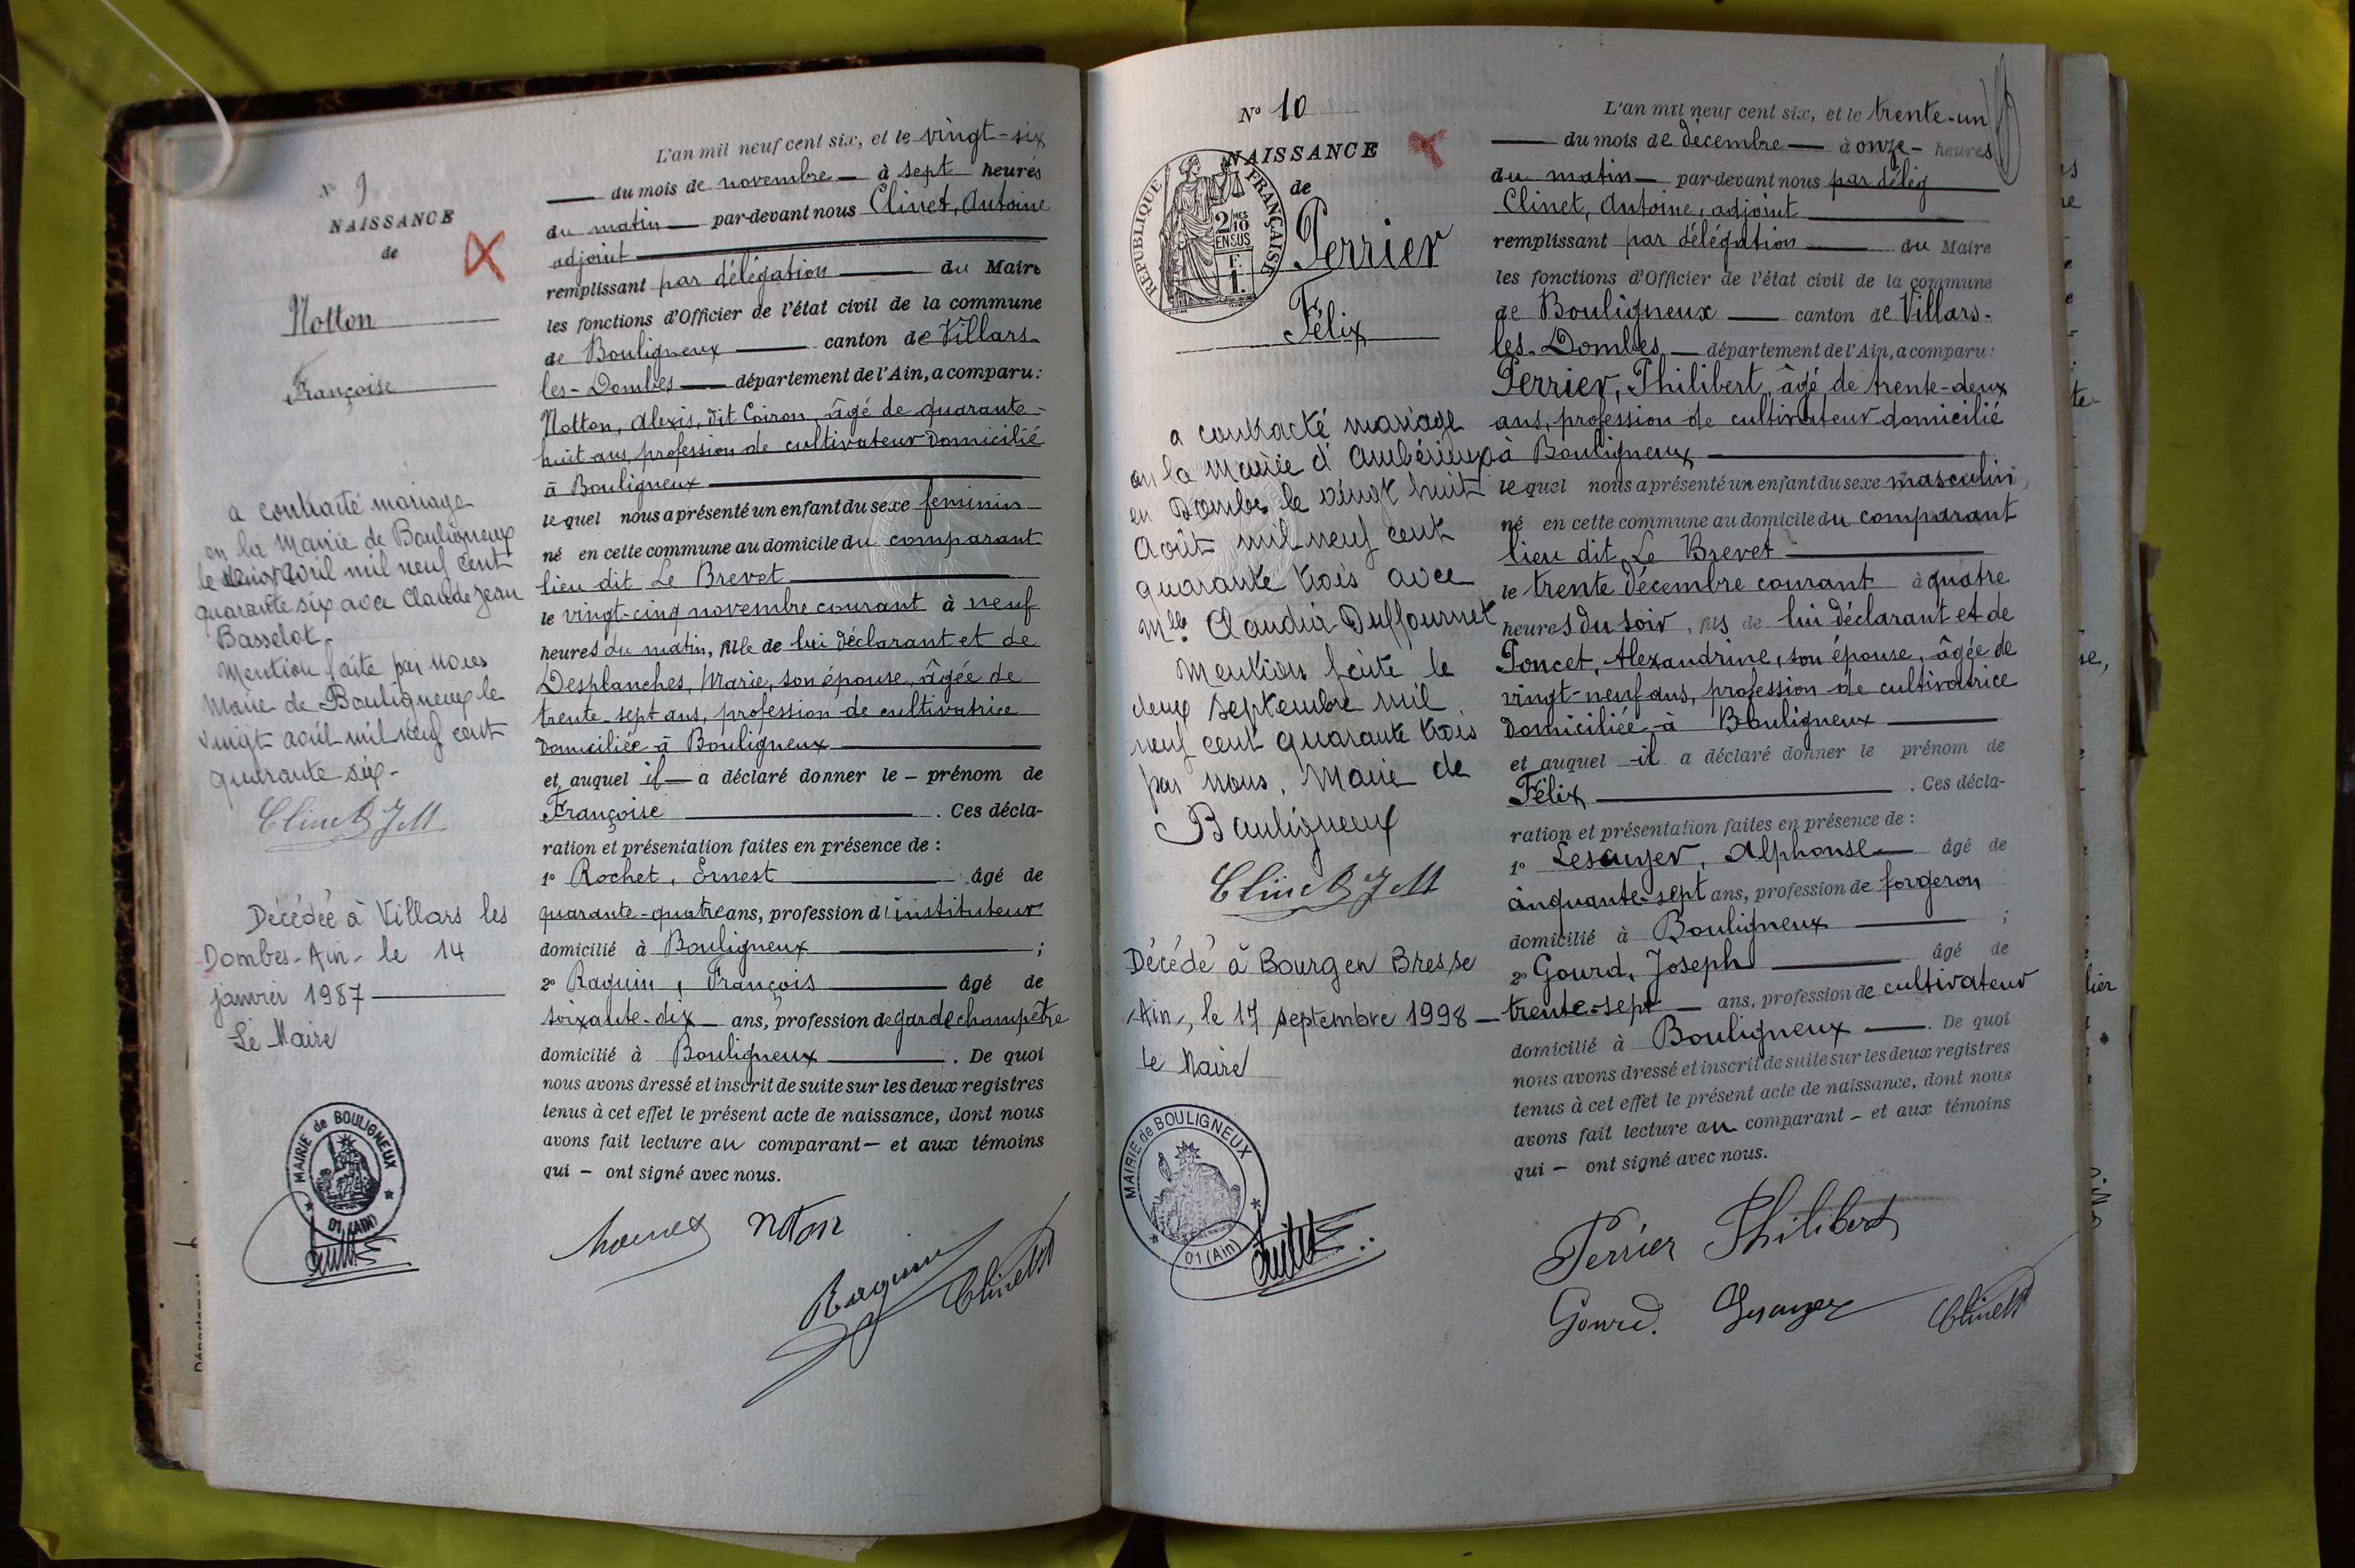 N° 9
NAISSANCE
de
Notton
Françoise
a contracté mariage
en la Mairie de Bouligneux
le vingt août mil neuf cent
quarante six avec Claude Jean
Basselot.
Mention faite par nous
Maire de Bouligneux le
vingt août mil neuf cent
quarante six -
Décédée à Villars les
Dombes - Ain - le 14
janvier 1987
Le Maire
MAIRIE de BOULIGNEUX
01 (AIN)
L'an mil neuf cent six, et le vingt-six
du mois de novembre à sept heures
du matin par-devant nous Clinet, Antoine
adjoint
remplissant par délégation du Maire
les fonctions d'Officier de l'état civil de la commune
de Bouligneux canton de Villars-
les-Dombes département de l'Ain, a comparu :
Notton, Alexis, dit Coiron, âgé de quarante-
huit ans, profession de cultivateur domicilié
à Bouligneux
lequel nous a présenté un enfant du sexe feminin
né en cette commune au domicile du comparant
lieu dit Le Brevet
le vingt-cinq novembre courant à neuf
heures du matin, fille de lui déclarant et de
Desplanches, Marie, son épouse, âgée de
trente-sept ans, profession de cultivatrice
domiciliée à Bouligneux
et auquel il a déclaré donner le - prénom de
Françoise . Ces décla-
ration et présentation faites en présence de :
1° Rochet, Ernest âgé de
quarante-quatre ans, profession d'instituteur
domicilié à Bouligneux ;
2° Raguin, François âgé de
soixante-dix ans, profession de garde champêtre
domicilié à Bouligneux . De quoi
nous avons dressé et inscrit de suite sur les deux registres
tenus à cet effet le présent acte de naissance, dont nous
avons fait lecture au comparant - et aux témoins
qui - ont signé avec nous.
noton
Raguin
Clinet
N° 10
NAISSANCE
de
REPUBLIQUE FRANÇAISE
2/10
EN SUS
Perrier
Félix
a contracté mariage
en la Mairie d'Ambérieux
en Dombes le vingt huit
Août mil neuf cent
quarante trois avec
Mlle Claudia Duffournet
Mention faite le
deux septembre mil
neuf cent quarante trois
par nous, Maire de
Bouligneux
Décédé à Bourg en Bresse
-Ain-, le 17 septembre 1998 -
Le Maire
MAIRIE de BOULIGNEUX
01 (Ain)
L'an mil neuf cent six, et le trente-un
du mois de décembre à onze - heures
du matin par-devant nous par délég
Clinet, Antoine, adjoint
remplissant par délégation du Maire
les fonctions d'Officier de l'état civil de la commune
de Bouligneux canton de Villars-
les-Dombes département de l'Ain, a comparu :
Perrier, Philibert, âgé de trente-deux
ans, profession de cultivateur domicilié
à Bouligneux
lequel nous a présenté un enfant du sexe masculin
né en cette commune au domicile du comparant
lieu dit Le Brevet
le trente décembre courant à quatre
heures du soir, fils de lui déclarant et de
Poncet, Alexandrine, son épouse, âgée de
vingt-neuf ans, profession de cultivatrice
domiciliée à Bouligneux
et auquel il a déclaré donner le prénom de
Félix . Ces décla-
ration et présentation faites en présence de :
1° Lesauyer, Alphonse âgé de
cinquante-sept ans, profession de forgeron
domicilié à Bouligneux ;
2° Gourd, Joseph âgé de
trente-sept ans, profession de cultivateur
domicilié à Bouligneux . De quoi
nous avons dressé et inscrit de suite sur les deux registres
tenus à cet effet le présent acte de naissance, dont nous
avons fait lecture au comparant - et aux témoins
qui - ont signé avec nous.
Perrier Philibert
Gourd. Clinet